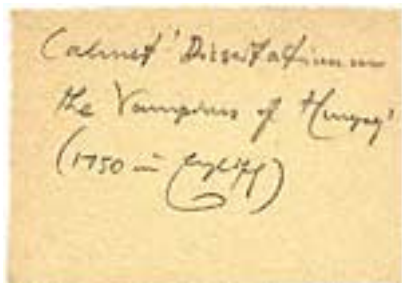 Calmet 'Dissertation on
the Vampires of Hungary'
(1750 in English)